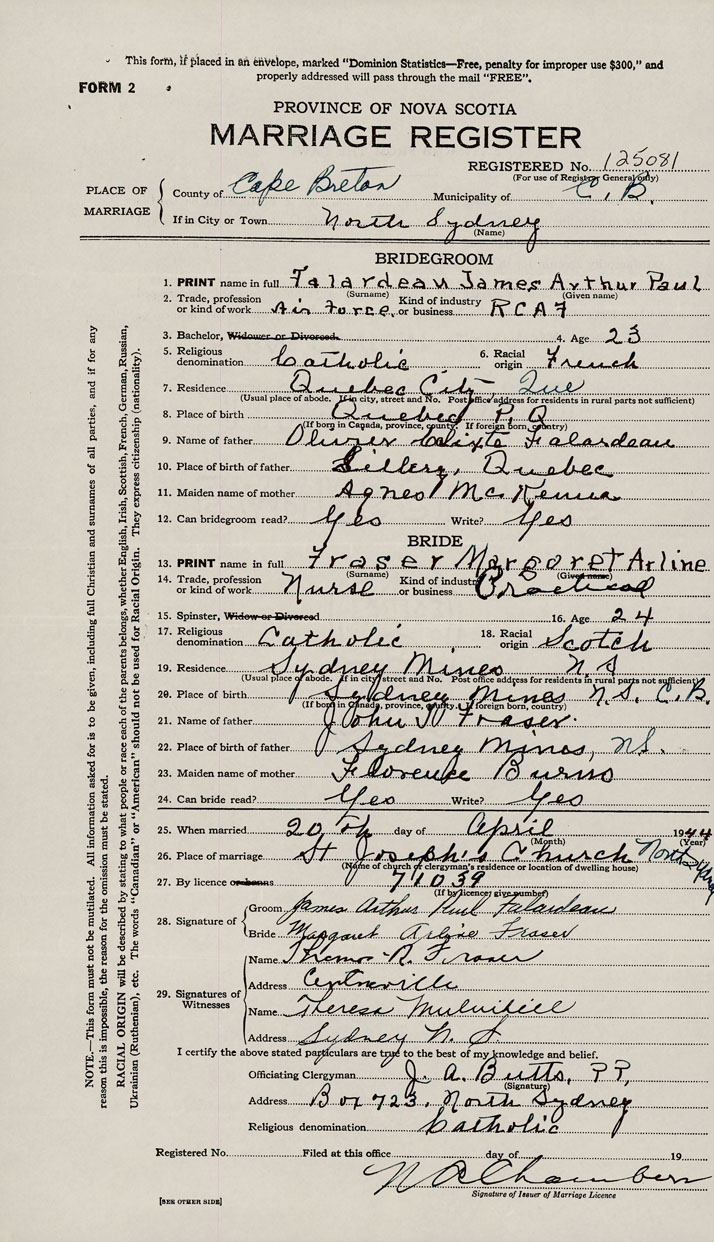 This form, if placed in an envelope, marked "Dominion Statistics—Free, penalty for improper use $300," and
properly addressed will pass through the mail "FREE".
FORM 2
PROVINCE OF NOVA SCOTIA
MARRIAGE REGISTER
REGISTERED No. 125081
(For use of Registrar General only)
PLACE OF MARRIAGE
County of Cape Breton Municipality of C. B.
If in City or Town North Sydney
(Name)
BRIDEGROOM
1. PRINT name in full Falardeau James Arthur Paul
(Surname) (Given name)
2. Trade, profession or kind of work Air Force Kind of industry or business RCAF
3. Bachelor, Widower or Divorced. 4. Age 23
5. Religious denomination Catholic 6. Racial origin French
7. Residence Quebec City, Que
(Usual place of abode. If in city, street and No. Post office address for residents in rural parts not sufficient)
8. Place of birth Quebec P. Q
(If born in Canada, province, county. If foreign born, country)
9. Name of father Olivier Calixte Falardeau
10. Place of birth of father Sillery, Quebec
11. Maiden name of mother Agnes McKenna
12. Can bridegroom read? Yes Write? Yes
BRIDE
13. PRINT name in full Fraser Margaret Arline
(Surname) (Given name)
14. Trade, profession or kind of work Nurse Kind of industry or business Practical
15. Spinster, Widow or Divorced 16. Age 24
17. Religious denomination Catholic 18. Racial origin Scotch
19. Residence Sydney Mines N. S
(Usual place of abode. If in city, street and No. Post office address for residents in rural parts not sufficient)
20. Place of birth Sydney Mines N.S. C.B.
(If born in Canada, province, county. If foreign born, country)
21. Name of father John Fraser
22. Place of birth of father Sydney Mines, NS.
23. Maiden name of mother Florence Burns
24. Can bride read? Yes Write? Yes
25. When married 20th day of April 1944
(Month) (Year)
26. Place of marriage St Joseph's Church North Sydney
(Name of church of clergyman's residence or location of dwelling house)
27. By licence or banns 71039
(If by licence, give number)
28. Signature of
Groom James Arthur Paul Falardeau
Bride Margaret Arline Fraser
29. Signatures of Witnesses
Name Thomas R. Fraser
Address Centreville
Name Theresa
Address Sydney N. S.
I certify the above stated particulars are true to the best of my knowledge and belief.
Officiating Clergyman J. A. Butts, P.P.,
(Signature)
Address Box 723, North Sydney
Religious denomination Catholic
Registered No. Filed at this office day of 19
Chambers
Signature of Issuer of Marriage Licence
[SEE OTHER SIDE]
NOTE.—This form must not be mutilated. All information asked for is to be given, including full Christian and surnames of all parties, and if for any
reason this is impossible, the reason for the omission must be stated.
RACIAL ORIGIN will be described by stating to what people or race each of the parents belongs, whether English, Irish, Scottish, French, German, Russian,
Ukrainian (Ruthenian), etc. The words "Canadian" or "American" should not be used for Racial Origin. They express citizenship (nationality).